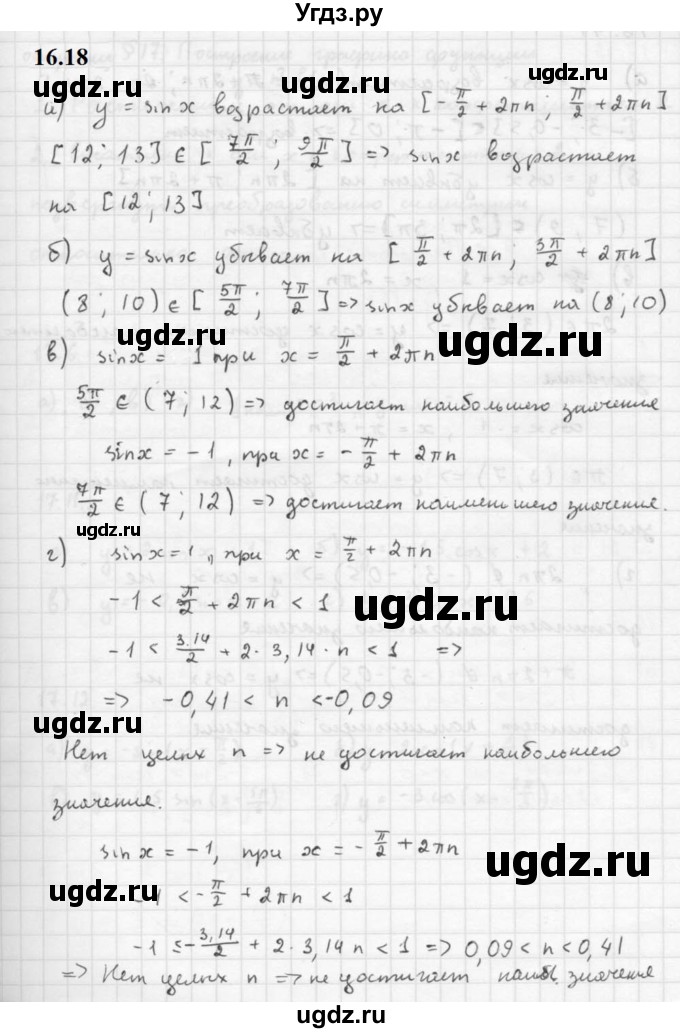 Угдз.ру
16.18
ugdz.ru ugdz.ru
а) y = sin x возрастает на [-π/2 + 2πn ; π/2 + 2πn]
[12 ; 13] ∈ [7π/2 ; 9π/2] => sin x возрастает
на [12 ; 13]
ugdz.ru
б) y = sin x убывает на [π/2 + 2πn ; 3π/2 + 2πn]
(8 ; 10) ∈ [5π/2 ; 7π/2] => sin x убывает на (8 ; 10)
ugdz.ru ugdz.ru
в) sin x = 1 при x = π/2 + 2πn
5π/2 ∈ (7 ; 12) => достигает наибольшего значения
ugdz.ru
sin x = -1, при x = -π/2 + 2πn
7π/2 ∈ (7 ; 12) => достигает наименьшего значения.
ugdz.ru
г) sin x = 1, при x = π/2 + 2πn
-1 < π/2 + 2πn < 1
ugdz.ru
-1 < 3,14/2 + 2 · 3,14 · n < 1 =>
=> -0,41 < n < -0,09
Нет целых n => не достигает наибольшего
значения.
ugdz.ru
sin x = -1, при x = -π/2 + 2πn
ugdz.ru
-1 < -π/2 + 2πn < 1
-1 ≤ -3,14/2 + 2 · 3,14 n < 1 => 0,09 < n < 0,41
=> Нет целых n => не достигает значения
ugdz.ru ugdz.ru